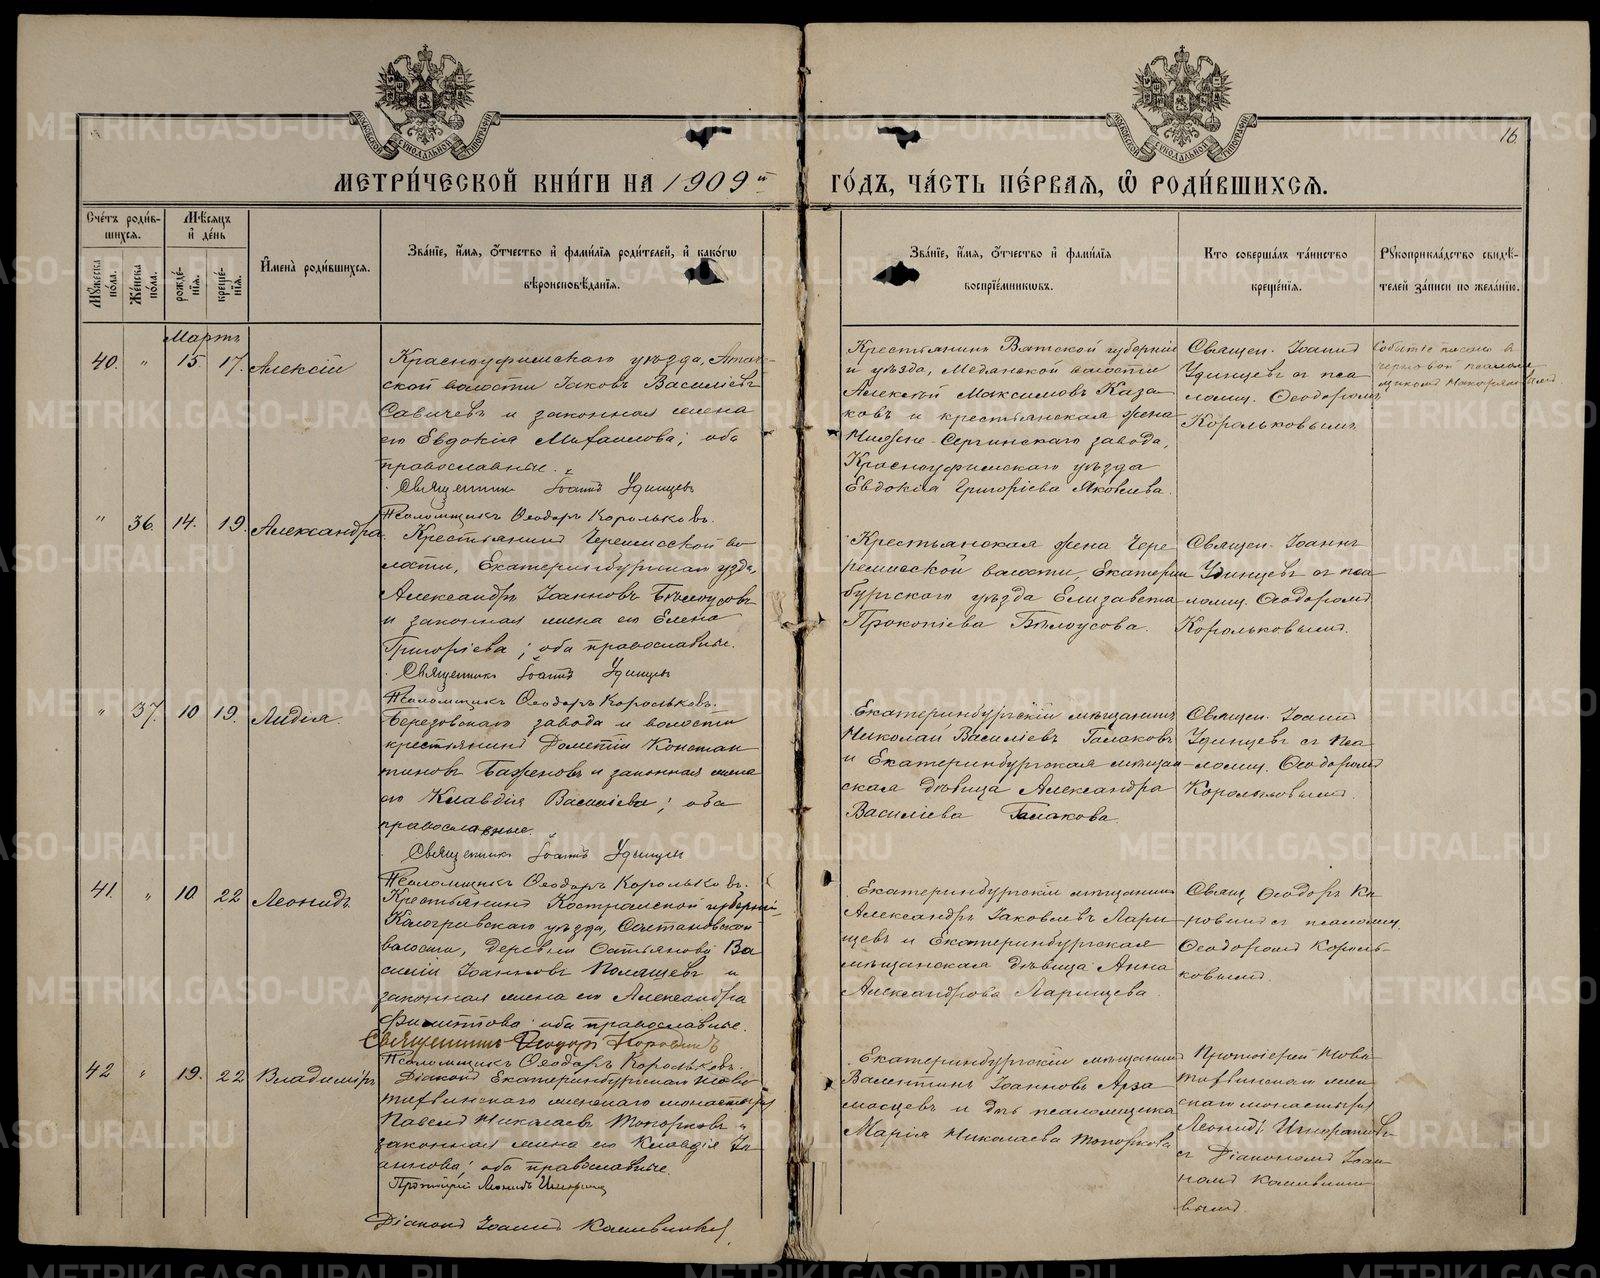 МЕТРИ́ЧЕСКОЙ КНИ́ГИ НА 1909й
ГО́ДЪ, ЧА́СТЬ ПЕ́РВАѦ, Ѽ РОДИ́ВШИХСѦ.
16
Сче́тъ роди́в-
шихсѧ.
Мѣ́сѧцъ
и҆ де́нь
Мꙋ́жеска по́ла.
Же́нска по́ла.
рожде́-
нїѧ.
креще́-
нїѧ.
И҆мена̀ роди́вшихсѧ.
Зва́нїе, и҆́мѧ, ѻ҆́тчество и҆ фами́лїѧ роди́телей, и҆ како́гѡ
вѣроисповѣ́данїѧ.
Зва́нїе, и҆́мѧ, ѻ҆́тчество и҆ фами́лїѧ
воспрїе́мникѡвъ.
Кто̀ соверша́лъ та́инство
креще́нїѧ.
Рꙋкоприкла́дство свидѣ́-
телей за́писи по жела́нїю.
Мартъ
40. " 15. 17. Алексій
Красноуфимскаго уѣзда,
ской волости Іаковъ Василіевъ
Савичевъ и законная жена
его Евдокія Михаилова; оба
православные.
Священникъ Іоаннъ Удинцевъ
Псаломщикъ Ѳеодоръ Корольковъ.
Крестьянинъ Вятской губерніи
и уѣзда, Медянской волости
Алексѣй Максимовъ Каза-
ковъ и крестьянская жена
Нижне-Сергинскаго завода,
Красноуфимскаго уѣзда
Евдокія Григоріева Яковлева.
Священ. Іоаннъ
Удинцевъ съ пса-
ломщ. Ѳеодоромъ
Корольковымъ.
" 36. 14. 19. Александра
Крестьянинъ Черемисской во-
лости, Екатеринбургскаго уѣзда,
Александръ Іоанновъ Бѣлоусовъ
и законная жена его Елена
Григоріева; оба православные.
Священникъ Іоаннъ Удинцевъ
Псаломщикъ Ѳеодоръ Корольковъ.
Крестьянская жена Чере-
ремисской волости, Екатерин
бургскаго уѣзда Елизавета
Прокопіева Бѣлоусова.
Священ. Іоаннъ
Удинцевъ съ пса-
ломщ. Ѳеодоромъ
Корольковымъ.
" 37. 10 19. Лидія.
Березовскаго завода и волости
крестьянинъ Дометій Констан
тиновъ Баженовъ и законная жена
его Клавдія Василіева; оба
православные.
Священникъ Іоаннъ Удинцевъ
Псаломщикъ Ѳеодоръ Корольковъ.
Екатеринбургскій мѣщанинъ
Николай Василіевъ Галаковъ
и Екатеринбургская мѣщан-
ская дѣвица Александра
Василіева Галакова.
Священ. Іоаннъ
Удинцевъ съ Пса-
ломщ. Ѳеодоромъ
Корольковымъ.
41. " 10. 22 Леонидъ
Крестьянинъ Костромской губерніи,
Кологривскаго уѣзда,
волости, деревни Ва
силій Іоанновъ и
законная жена его Александра
Филиппова оба православные.
Священникъ Ѳеодоръ Коровинъ
Псаломщикъ Ѳеодоръ Корольковъ.
Екатеринбургскій мѣщанинъ
Александръ Іаковлевъ Лари-
щевъ и Екатеринбургская
мѣщанская дѣвица Анна
Александрова Ларищева.
Свящ. Ѳеодоръ Ко-
ровинъ съ псаломщ.
Ѳеодоромъ Король-
ковымъ.
42 " 19. 22 Владиміръ
Діаконъ Екатеринбургскаго Ново-
тихвинскаго женскаго монастыря
Павелъ Николаевъ Топорковъ и
законная жена его Клавдія Іо-
аннова; оба православные.
Протоіерей Леонидъ
Діаконъ Іоаннъ
Екатеринбургскій мѣщанинъ
Валентинъ Іоанновъ Арза-
масцевъ и дочь псаломщика
Марія Николаева Топоркова
Протоіерей Ново-
тихвинскаго жен-
скаго монастыря
Леонидъ
съ Діакономъ Іоан-
номъ